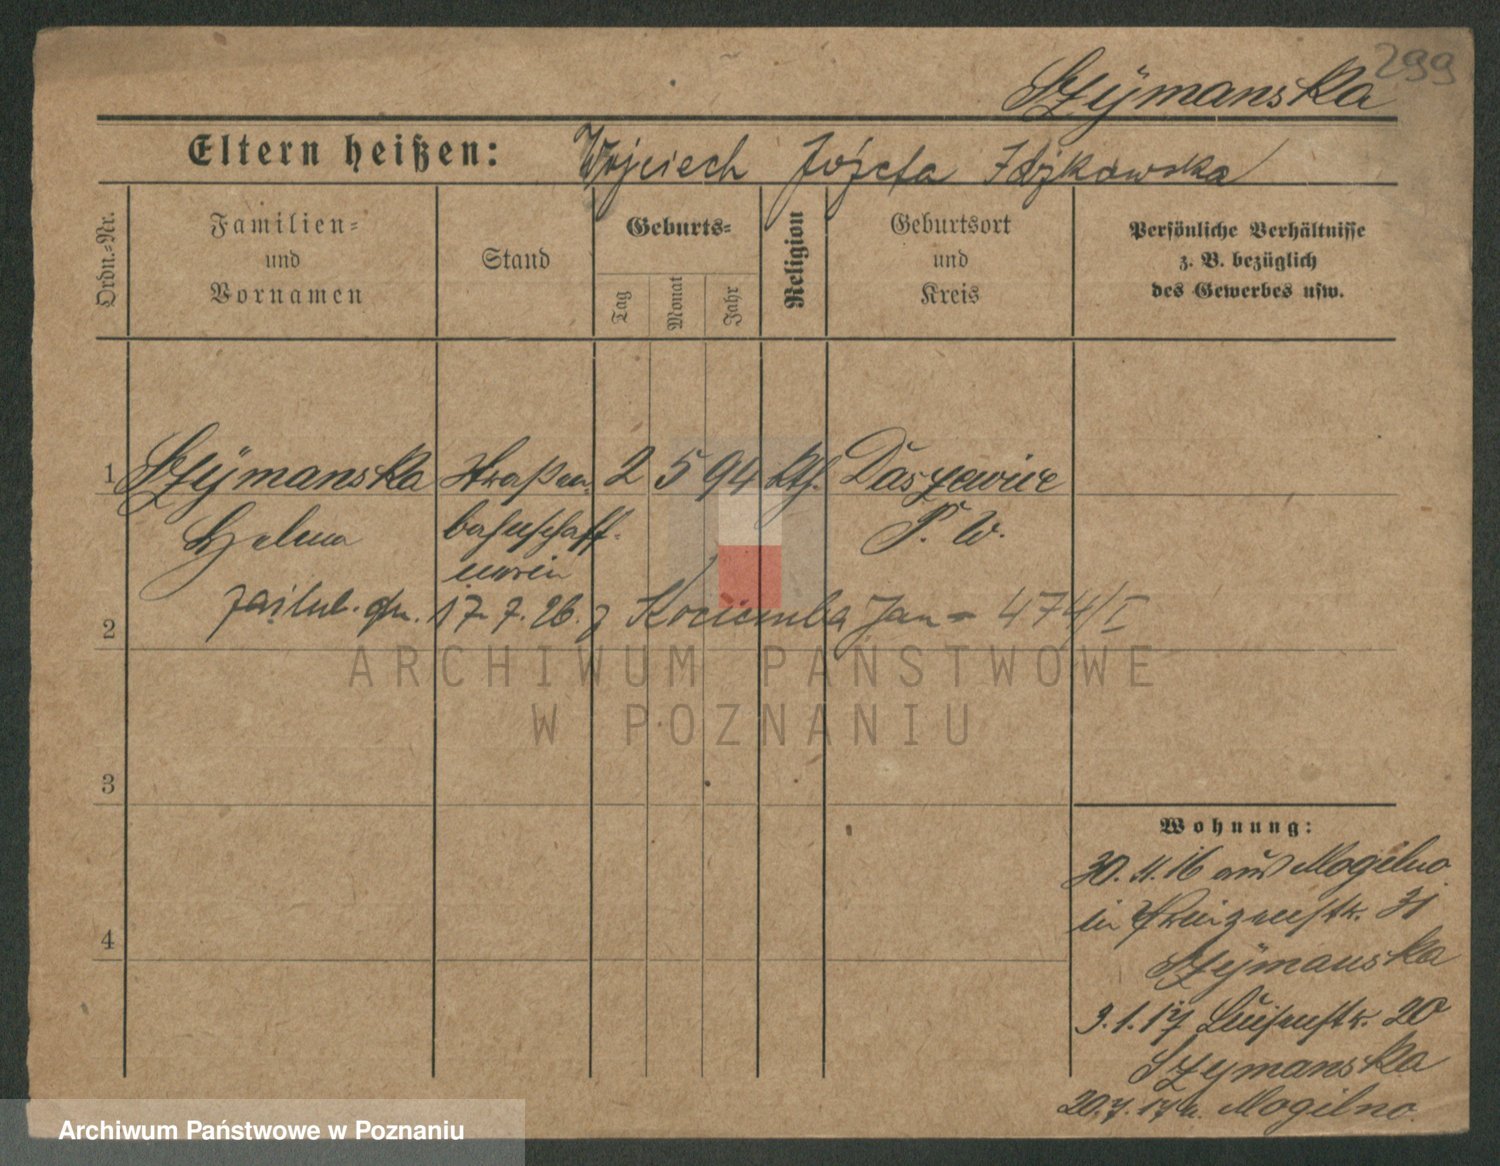 299
Szymanska
Eltern heißen: Wojciech Józefa Idzkowska
Ordn.-Nr.
Familien-
und
Vornamen
Stand
Geburts-
Tag
Monat
Jahr
Religion
Geburtsort
und
Kreis
Persönliche Verhältnisse
z. B. bezüglich
des Gewerbes usw.
1 Szymanska Straßen- 2 5 94 kth. Daszewice
Helena bahnschaff- P. W.
nerin
2 zaślub. dn. 17.7.26. z Kociemba Jan - 474/I
ARCHIWUM PAŃSTWOWE
W POZNANIU
3
4
Wohnung:
30.11.16 aus Mogilno
in 31
Szymanska
3.1.17 Luisenstr. 20
Szymanska
20.7.17 n. Mogilno.
Archiwum Państwowe w Poznaniu